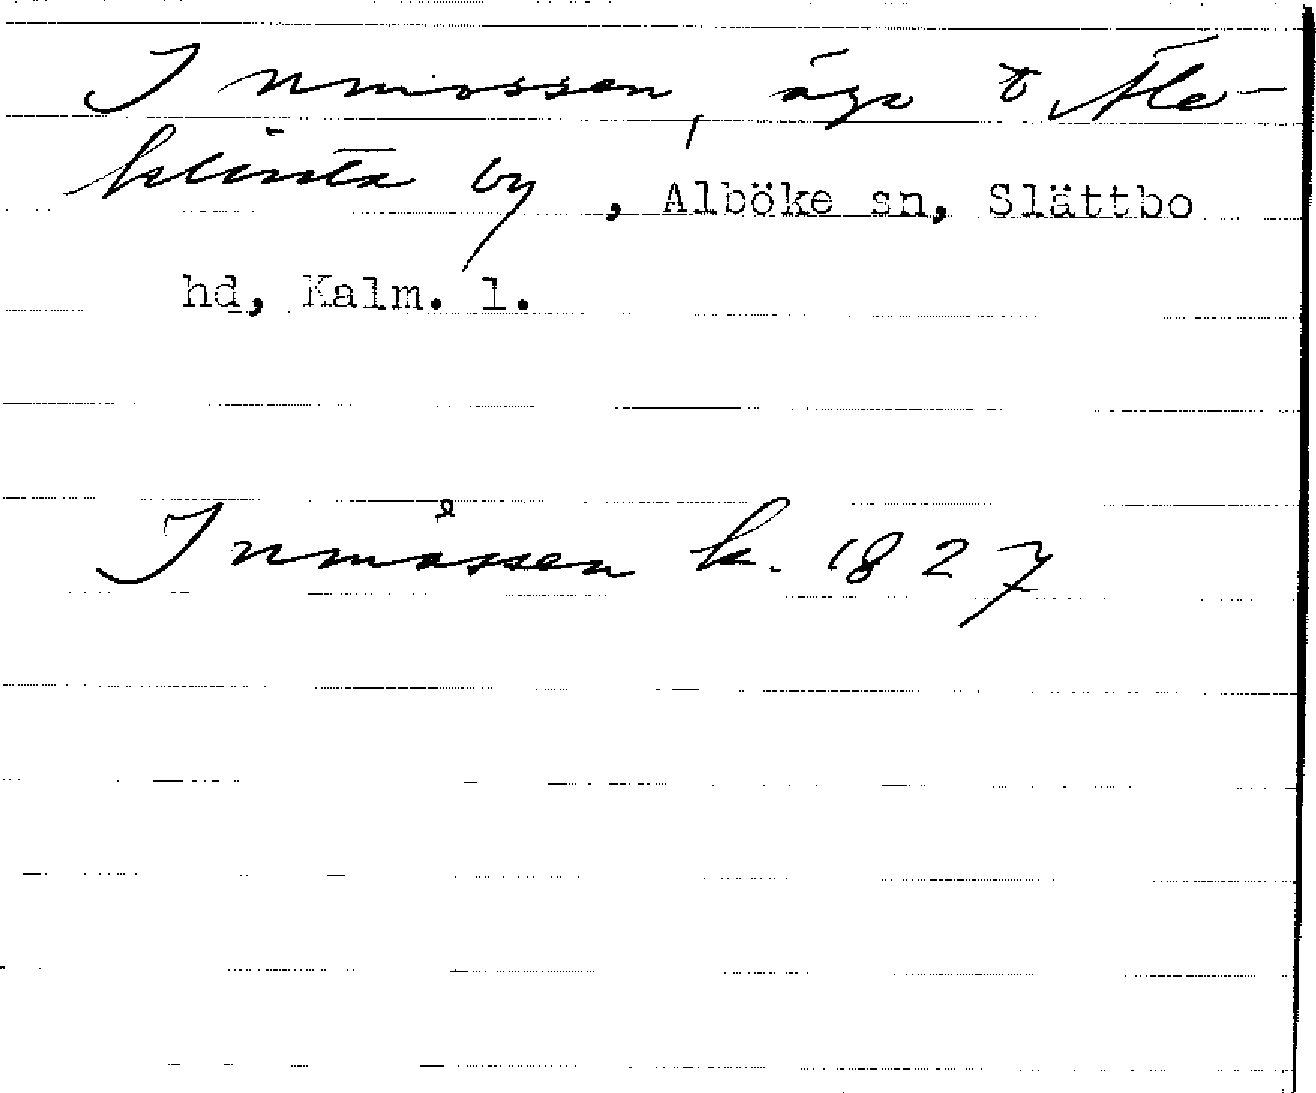 Inmossen, äga t. Äle-
klinta by, Alböke sn, Slättbo
hd, Kalm. l.
Inmåssen k. 1827